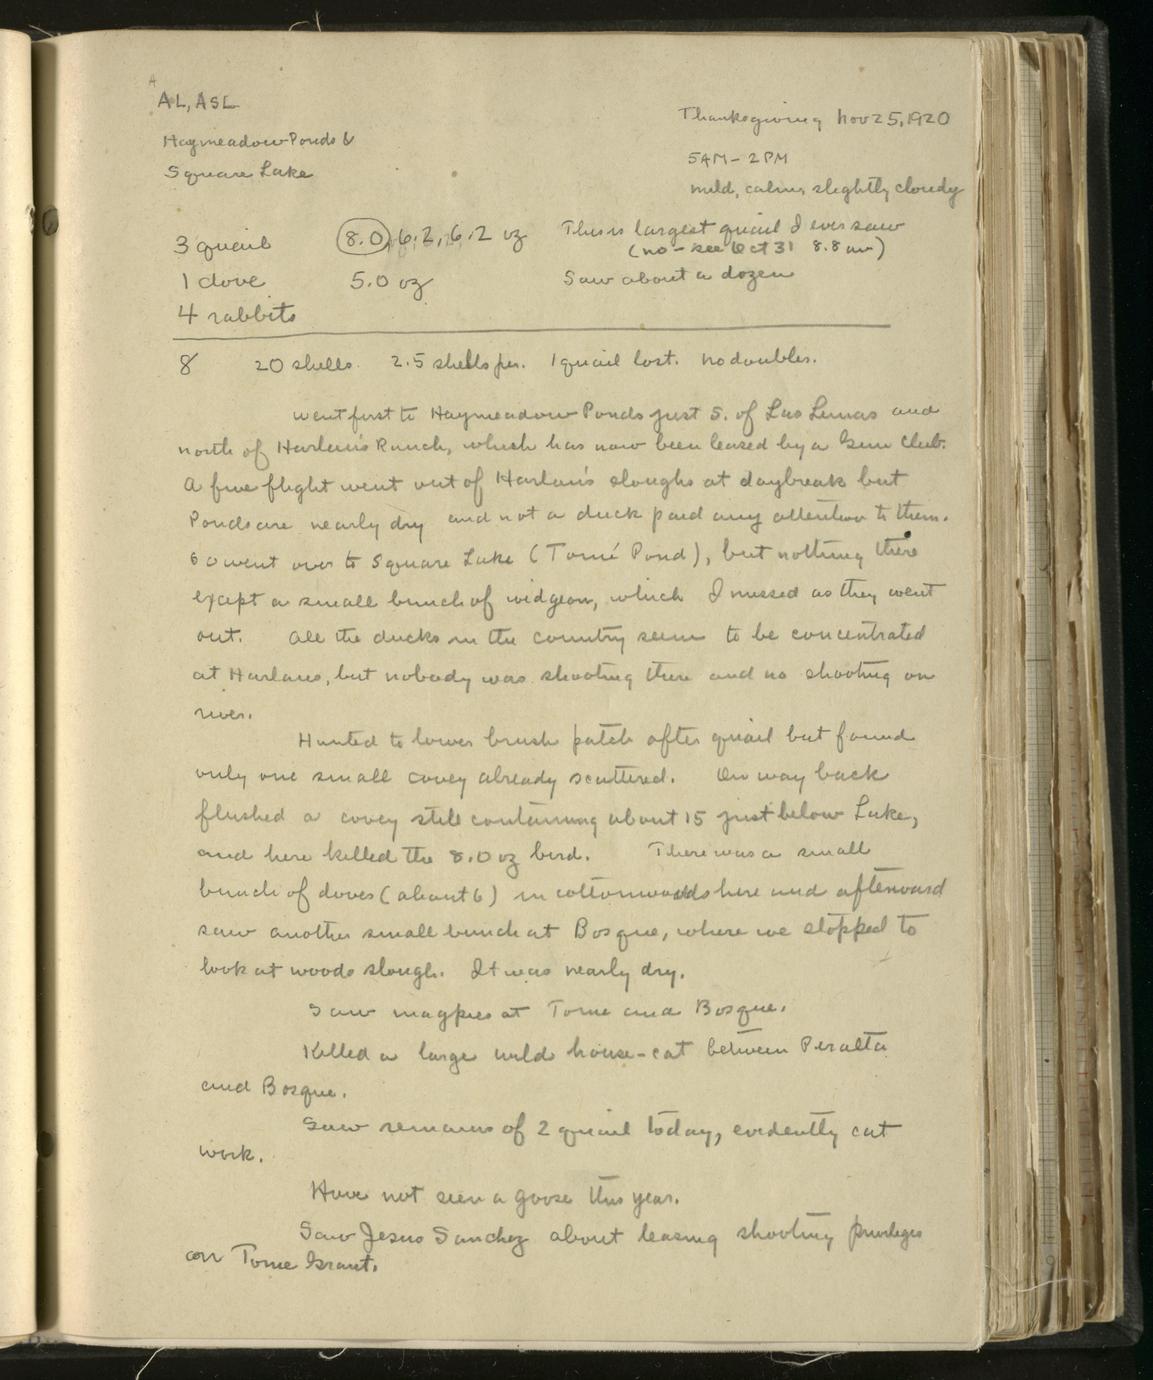 AL, ASL
Thanksgiving Nov 25, 1920
Haymeadow Ponds &
5AM - 2PM
Square Lake
mild, calm, slightly cloudy
3 quail 8.0, 6.2, 6.2 oz This is largest quail I ever saw
(no - see Oct 31 8.8 oz)
1 dove 5.0 oz Saw about a dozen
4 rabbits
8 20 shells. 2.5 shells per. 1 quail lost. No doubles.
Went first to Haymeadow Ponds just S. of Los Lunas and
north of Harlan's Ranch, which has now been leased by a Gun Club.
A fine flight went out of Harlan's sloughs at daybreak but
Ponds are nearly dry and not a duck paid any attention to them.
So went over to Square Lake (Tomé Pond), but nothing there
except a small bunch of widgeon, which I missed as they went
out. All the ducks in the country seem to be concentrated
at Harlans, but nobody was shooting there and no shooting on
river.
Hunted to lower brush patch after quail but found
only one small covey already scattered. On way back
flushed a covey still containing about 15 just below Lake,
and here killed the 8.0 oz bird. There was a small
bunch of doves (about 6) in cottonwoods here and afterward
saw another small bunch at Bosque, where we stopped to
look at woods slough. It was nearly dry.
Saw magpies at Tome and Bosque.
Killed a large wild house-cat between Peralta
and Bosque.
Saw remains of 2 quail today, evidently cat
work.
Have not seen a goose this year.
Saw Jesus Sanchez about leasing shooting privileges
on Tome Grant.